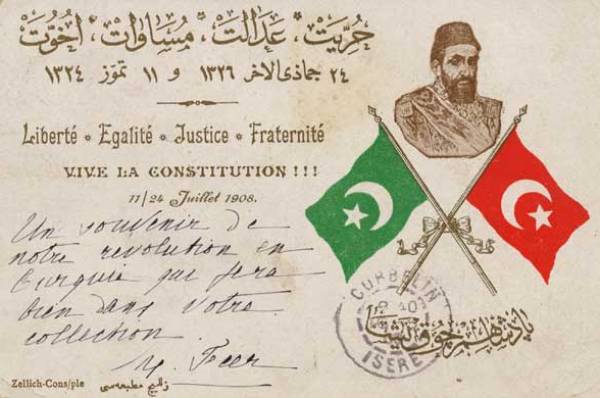 حریت، عدالت، مساوات، اخوّت
٢٤ جمادی الاخر ١٣٢٦ و ١١ تموز ١٣٢٤
Liberté * Egalité * Justice * Fraternité
VIVE LA CONSTITUTION !!!
11/24 Juillet 1908.
Un souvenir de
notre revolution en
Turquie qui fera
bien dans votre
collection
پادشاهم چوق یشا
CORBELIN
ISÈRE
Zellich-Cons/ple
زلیچ مطبعه‌سی